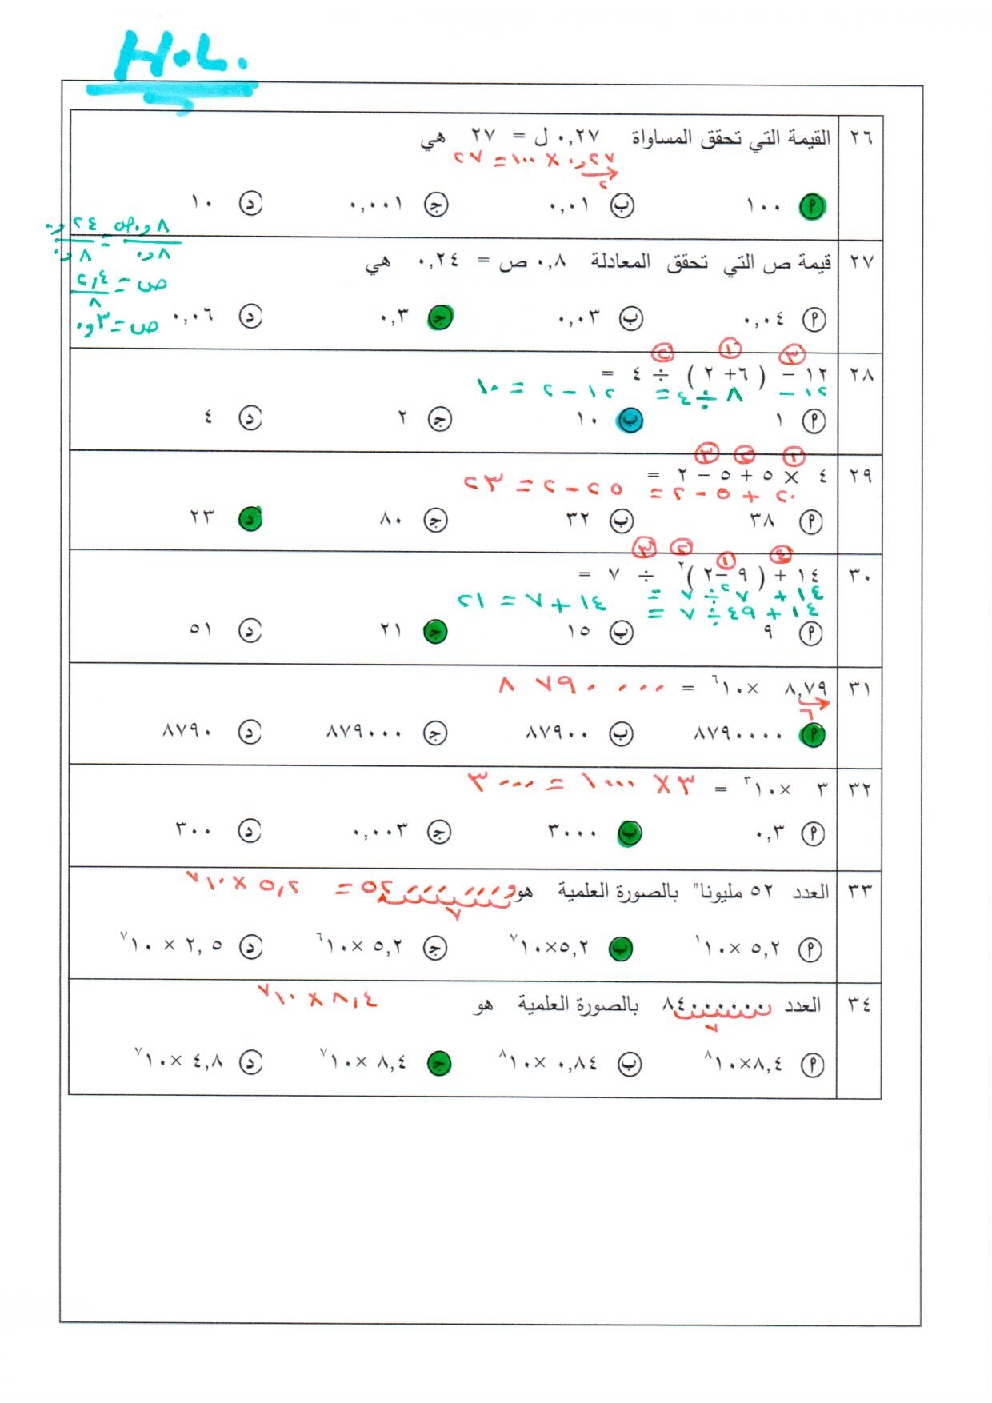 H.L.
٢٦ القيمة التي تحقق المساواة ٠,٢٧ ل = ٢٧ هي
٠,٢٧ × ١٠٠ = ٢٧
٢
أ ١٠٠ ب ٠,٠١ ج ٠,٠٠١ د ١٠
٢٧ قيمة ص التي تحقق المعادلة ٠,٨ ص = ٠,٢٤ هي
ص = ٢,٤
٨
ص = ٠,٣
أ ٠,٠٤ ب ٠,٠٣ ج ٠,٣ د ٠,٠٦
٣ ١ ٢
٢٨ ١٢ – ( ٦+ ٢ ) ÷ ٤ =
١٢ – ٨ ÷ ٤ = ١٢ – ٢ = ١٠
أ ١ ب ١٠ ج ٢ د ٤
١ ٢ ٣
٢٩ ٤ × ٥ + ٥ – ٢ =
٢٠ + ٥ – ٢ = ٢٥ – ٢ = ٢٣
أ ٣٨ ب ٣٢ ج ٨٠ د ٢٣
٤ ١ ٢ ٣
٣٠ ١٤ + ( ٩ –٢ )٢ ÷ ٧ =
١٤ + ٧٢ ÷ ٧ =
١٤ + ٤٩ ÷ ٧ = ١٤ + ٧ = ٢١
أ ٩ ب ١٥ ج ٢١ د ٥١
٣١ ٨,٧٩ ×١٠٦ = ٨٧٩٠٠٠٠
٦
أ ٨٧٩٠٠٠٠ ب ٨٧٩٠٠ ج ٨٧٩٠٠٠ د ٨٧٩٠
٣٢ ٣ ×١٠٣ = ٣ × ١٠٠٠ = ٣٠٠٠
أ ٠,٣ ب ٣٠٠٠ ج ٠,٠٠٣ د ٣٠٠
٣٣ العدد ٥٢ مليونا" بالصورة العلمية هو ٥٢٠٠٠٠٠٠ = ٥,٢ × ١٠٧
٧
أ ٥,٢ ×١٠١ ب ٥,٢×١٠٧ ج ٥,٢ ×١٠٦ د ٢,٥ × ١٠٧
٣٤ العدد ٨٤٠٠٠٠٠٠ بالصورة العلمية هو ٨,٤ × ١٠٧
٧
أ ٨,٤×١٠٨ ب ٠,٨٤ ×١٠٨ ج ٨,٤ ×١٠٧ د ٤,٨ ×١٠٧